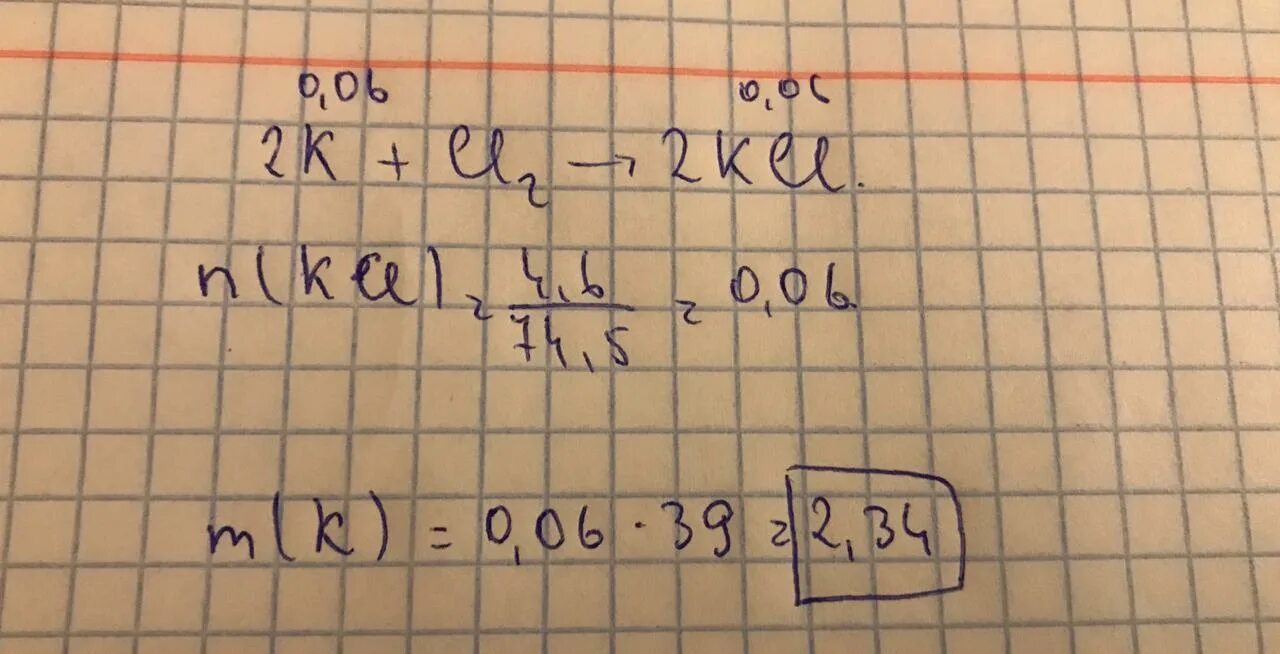 0,06 0,06
2K + Cl₂ → 2KCl.
n(KCl) = 4,6/74,5 = 0,06
m(K) = 0,06 · 39 = 2,34